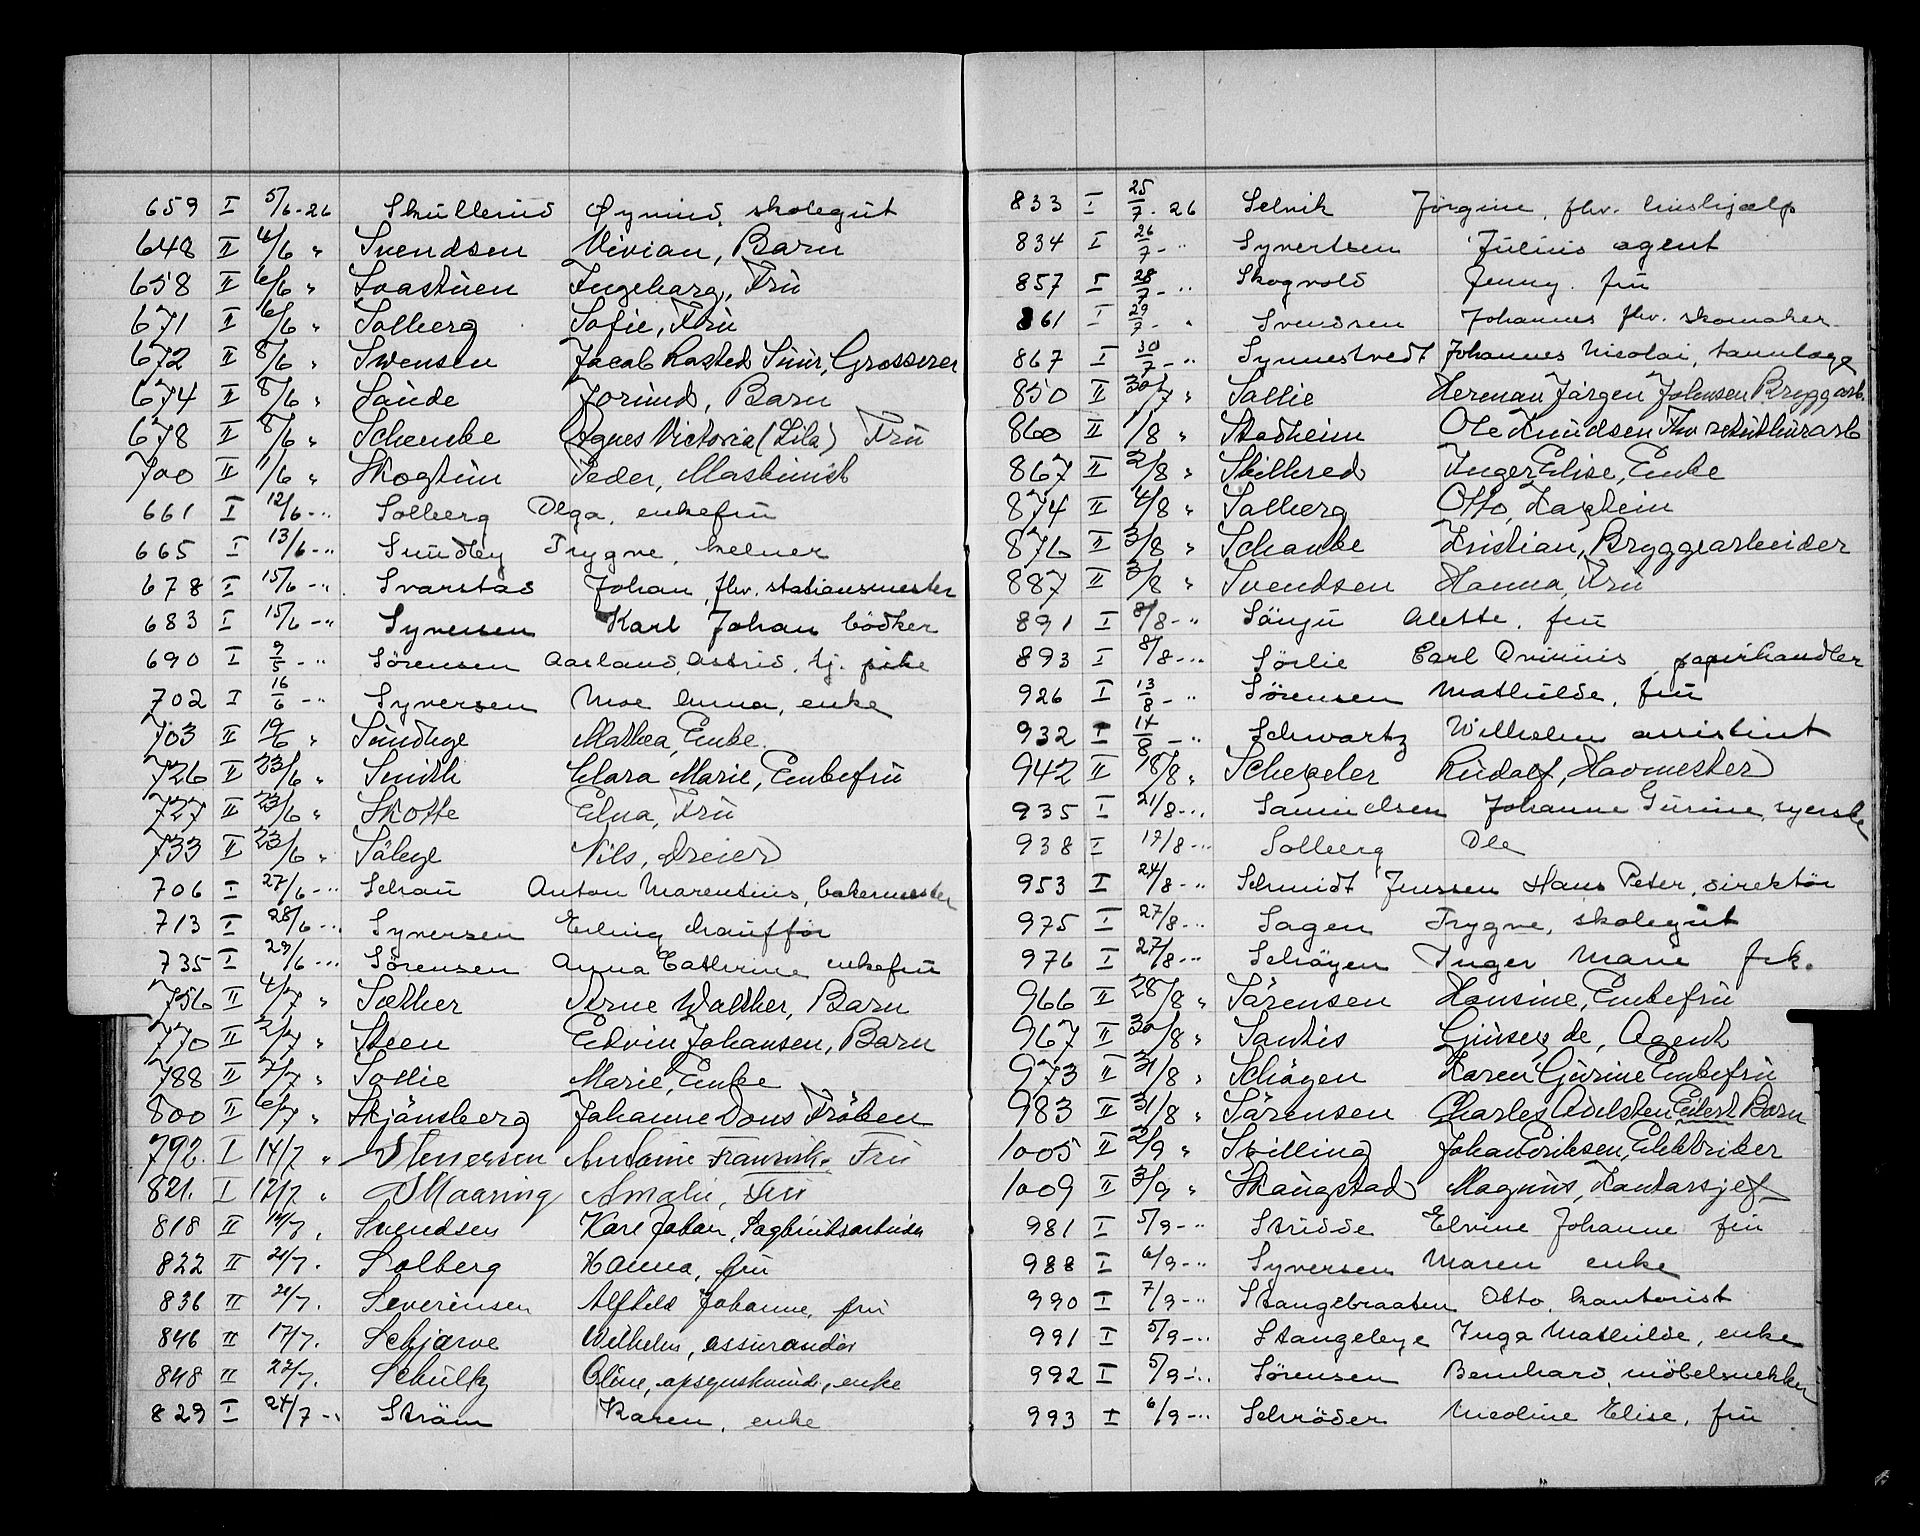 659 I 5/6-26 Skullerud Øyvind, skolegut
648 II 4/6 " Svendsen Vivian, Barn
658 II 6/6 " Svastuen Ingeborg, Fru
671 II 6/6 " Solberg Sofie, Fru
672 II 8/6 " Swensen Jacob Rasted Smir, Grosserer
674 II 8/6 " Saude Jorund, Barn
678 II 8/6 " Schencke Agnes Victoria (Lila) Fru
700 II 11/6 " Skogtun Peder, Maskinist
661 I 12/6-" Solberg Olga, enkefru
665 I 13/6-" Sundby Trygve, kelner
678 I 15/6-" Svarstad Johan, fhv. stationsmester
683 I 15/6-" Syversen Karl Johan bödker
690 I 9/5-" Sörensen Aarland, Astrid, tj. pike
702 I 16/6-" Syversen Moe Anna, enke
703 II 19/6 " Sundbye Mathea, Enke.
726 II 23/6 " Smith Clara Marie, Enkefru
727 II 23/6 " Skotte Elna, Fru
733 II 23/6 " Säbye Nils, Dreier
706 I 27/6-" Schau Anton Marentius, bakermester
713 I 28/6-" Syversen Erling chauffør
735 I 29/6-" Sörensen Anna Cathrine enkefru
756 II 4/7 " Sæther Arne Walther, Barn
770 II 2/7 " Steen Edvin Johansen, Barn
788 II 7/7 " Sollie Marie, Enke
800 II 6/7 " Skjänsberg Johanne Dons Fröken
792. I 14/7 " Stenersen Antonie Franziska Fru
821. I 17/7 " Smaaring Amalie, Fru
818 II 14/7. Svendsen Karl Johan, Sagbruksarbeider
822 II 21/7. Solberg Hanna, fru
836 II 21/7. Severinsen Alfhild Johanne, fru
846 II 17/7. Schjarve Wilhelm, assurandör
848 II 22/7. Schultz Oline, opsynskvinde, enke
829 I 24/7-" Ström Karen, enke
833 I 25/7-26 Selvik Jörgine, fhv. hushjælp
834 I 26/7-" Syvertsen Julius agent
857 I 28/7-" Skogvold Jenny, fru
861 I 29/7-" Svendsen Johannes fhv. skomaker
867 I 30/7-" Synnestvedt Johannes Nicolai, tannlæge
850 II 30/7 " Sollie Herman Jörgen Johnsen Bryggarb.
860 II 1/8 " Stadheim Ole Knudsen
867 II 2/8 " Skillred Inger Elise, Enke
874 II 4/8 " Solberg Otto, Kaptein
876 II 3/8 " Schanke Kristian, Bryggearbeider
887 II 3/8 " Svendsen Hanna, Fru
891 I 8/8-" Sänju Alette, fru
893 I 8/8-" Sörlie Carl Qvinius papirhandler
926 I 13/8-" Sörensen Mathilde, fru
932 I 14/8-" Schwartz Wilhelm assistent
942 II 18/8 " Scheeler Rudolf, Hovmester
935 I 21/8-" Samuelsen Johanne Gurine, syerske
938 I 17/8-" Solberg Ole
953 I 24/8-" Schmidt Jenssen Hans Peter, direktör
975 I 27/8-" Sagen Trygve, skolegut
976 I 27/8-" Schöyen Inger Marie frk.
966 II 28/8 " Sörensen Hansine, Enkefru
967 II 30/8 " Santis Giusep de, Agent
973 II 31/8 " Schöyen Karen Gurine Enkefru
983 II 31/8 " Sörensen Charles Adelsten Eilert Barn
1005 II 2/9 " Svilling Johan Eriksen, Elektriker
1009 II 3/9 " Skaugstad Magnus, Kontorsjef
981 I 5/9-" Strøde Elvine Johanne fru
988 I 6/9-" Syversen Maren enke
990 I 7/9-" Stangebraaten Otto, kontorist
991 I 5/9-" Stangebye Inga Mathilde, enke
992 I 5/9-" Sörensen Bernhard, möbelsnekker
993 I 6/9-" Schröder Nicoline Elise, fru